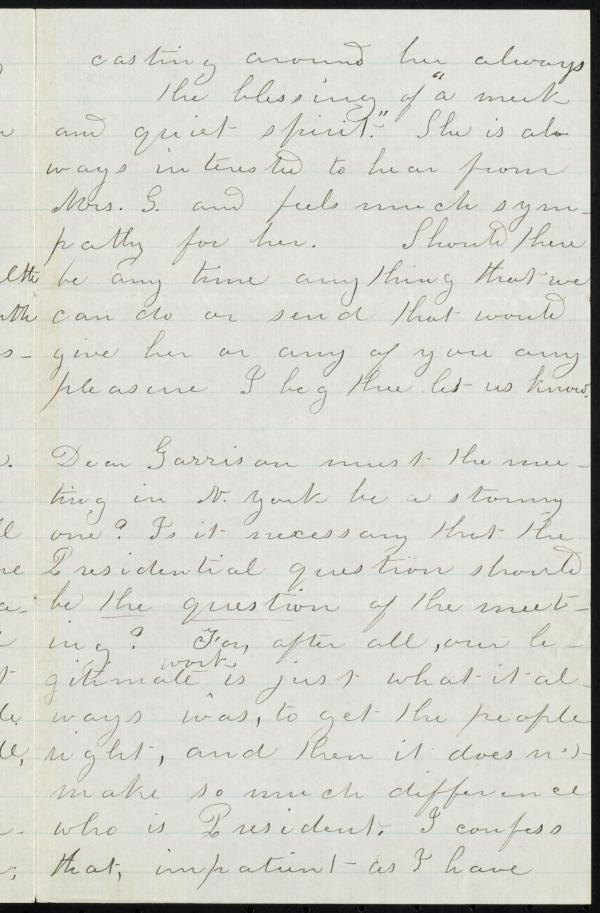 casting around her always
the blessing of "a meek
and quiet spirit." She is al-
ways interested to hear from
Mrs. G. and feels much sym-
pathy for her. Should there
be any time anything that we
can do or send that would
give her or any of you any
pleasure I beg thee let us know.
Dear Garrison must the mee-
ting in N. York be a stormy
one? Is it necessary that the
Presidential question should
be the question of the meet-
ing? For, after all, our le-
gitimate work is just what it al-
ways was, to get the people
right, and then it does n't
make so much difference
who is President. I confess
that, impatient as I have